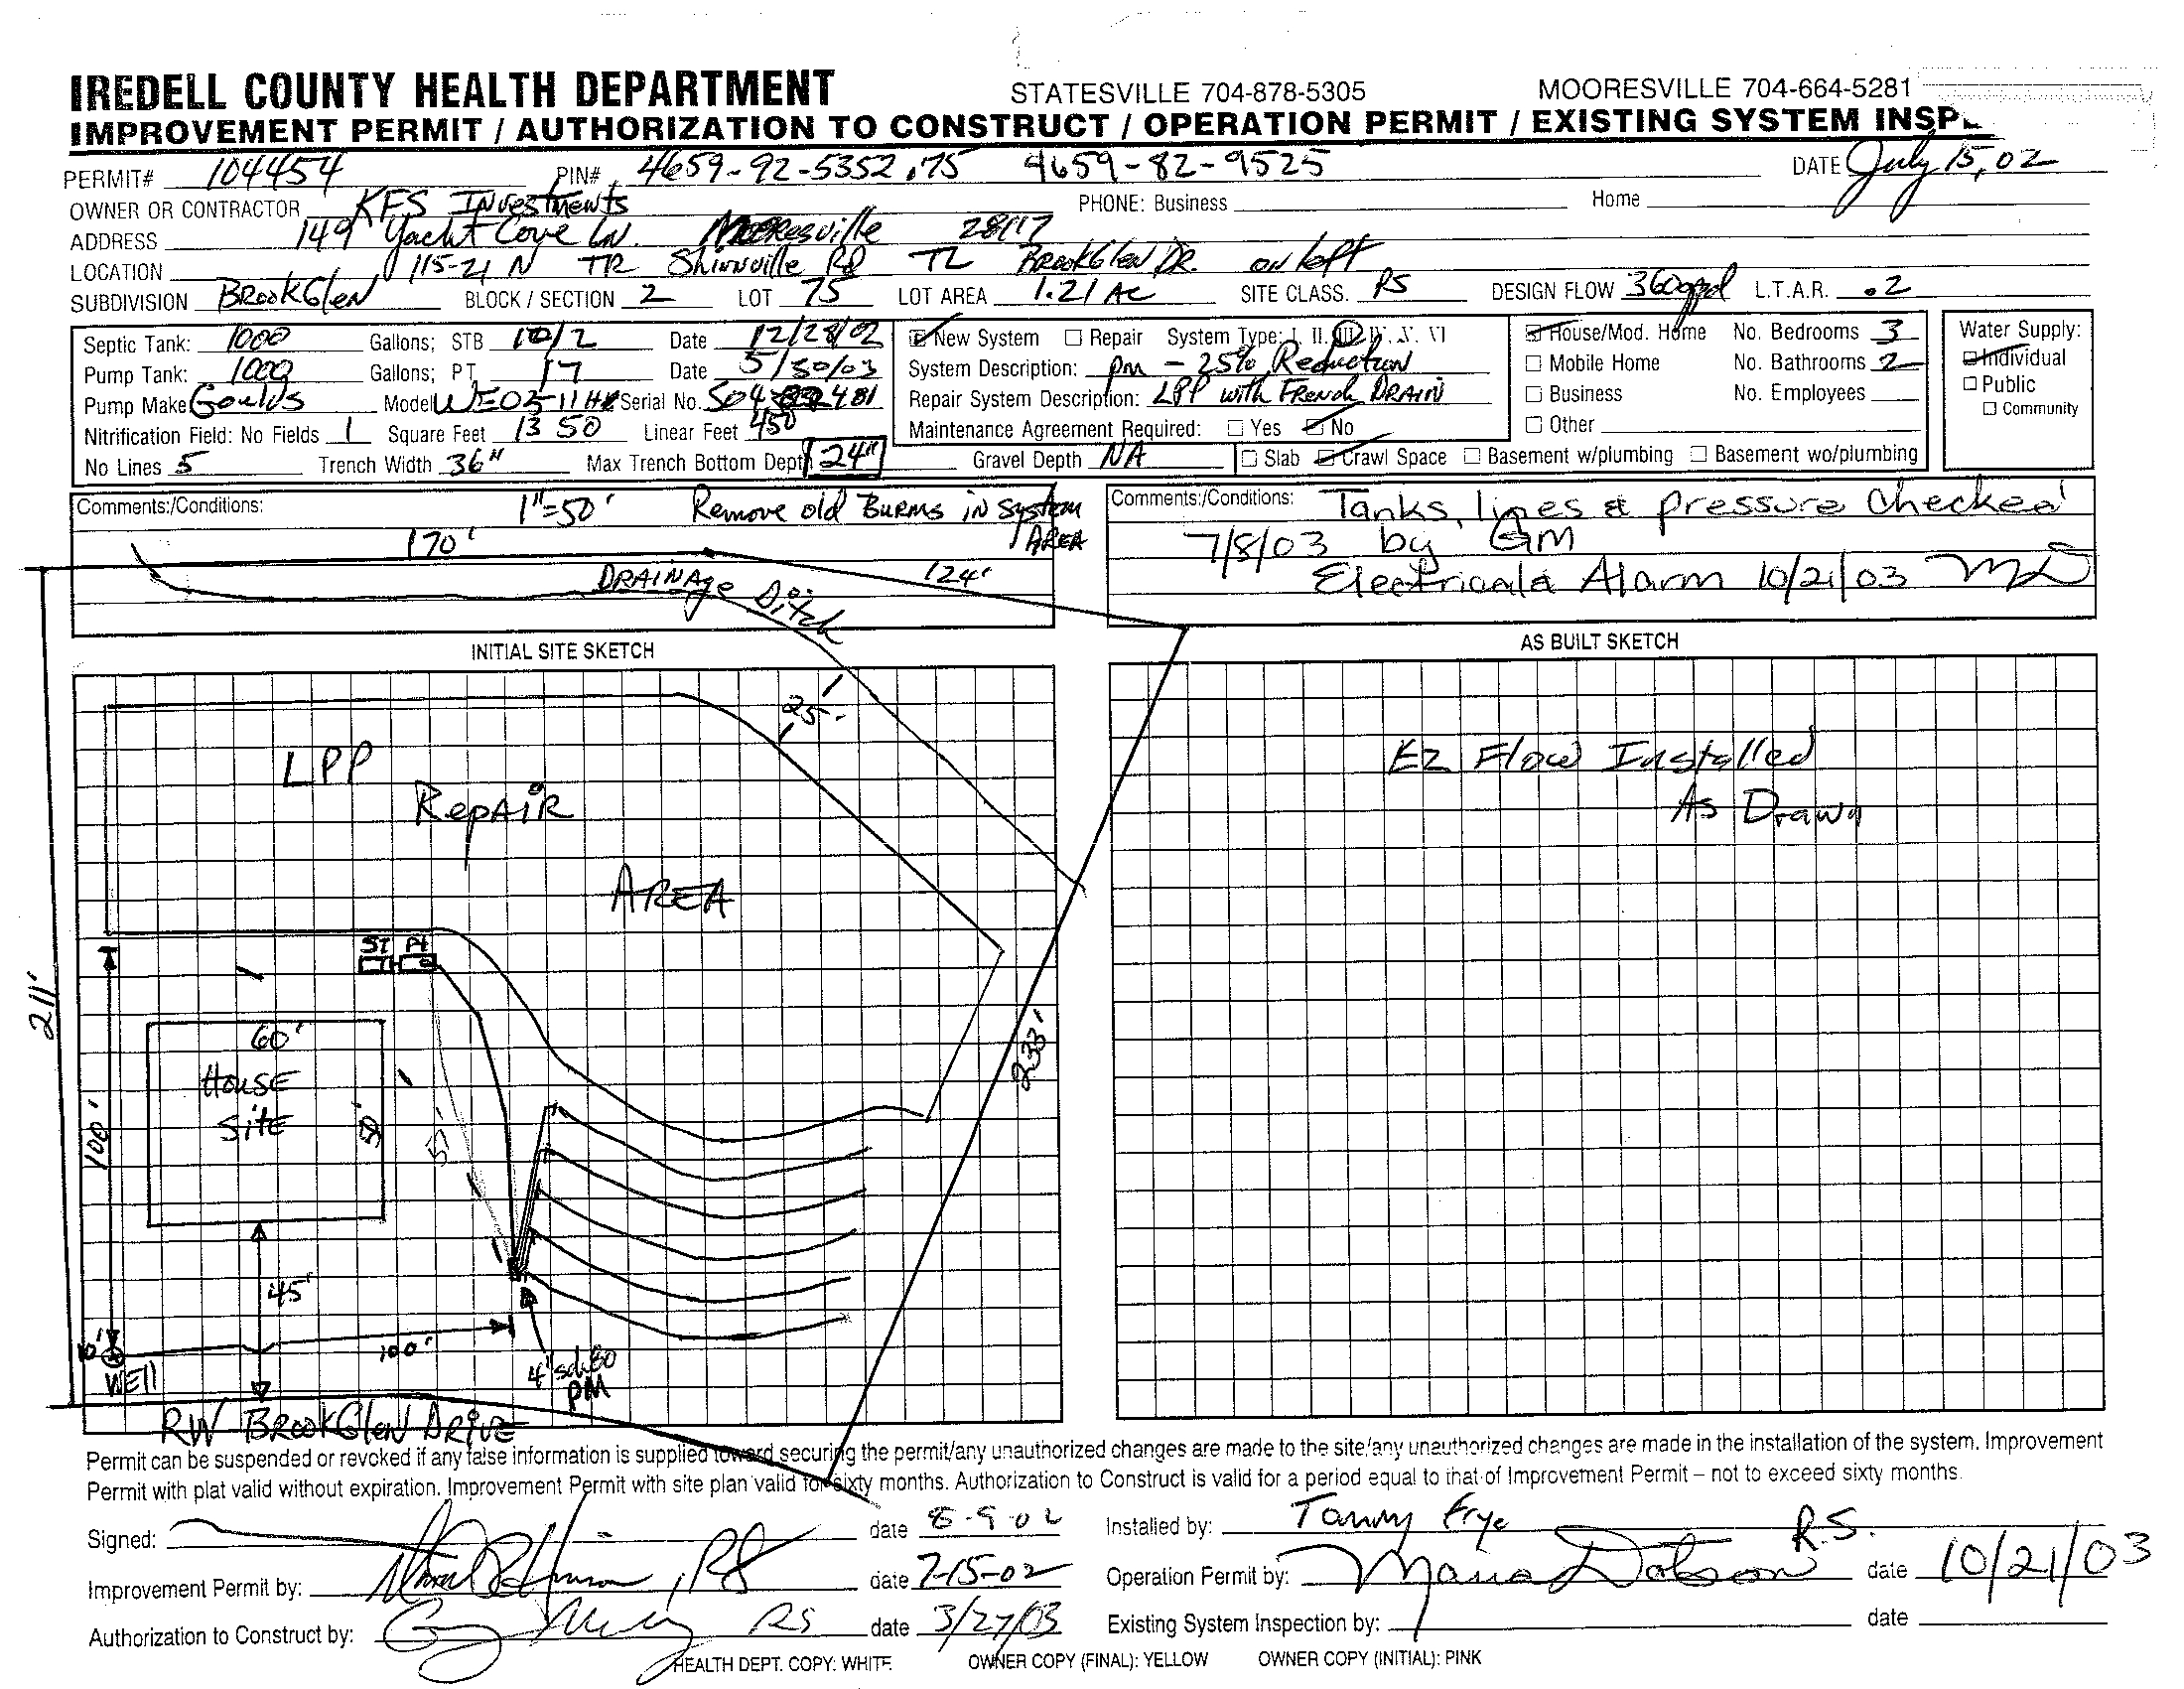 IREDELL COUNTY HEALTH DEPARTMENT STATESVILLE 704-878-5305 MOORESVILLE 704-664-5281
IMPROVEMENT PERMIT / AUTHORIZATION TO CONSTRUCT / OPERATION PERMIT / EXISTING SYSTEM INSP
PERMIT# 104454 PIN# 4659-92-5352.75 4659-82-9525 DATE July 15, 02
OWNER OR CONTRACTOR KFS Investments PHONE: Business Home
ADDRESS 149 Yacht Cove Ln. Mooresville 28117
LOCATION 115-21 N TR Shinnville Rd TL BrookGlen Dr. on left
SUBDIVISION BrookGlen BLOCK / SECTION 2 LOT 75 LOT AREA 1.21 Ac SITE CLASS. PS DESIGN FLOW 360gpd L.T.A.R. .2
Septic Tank: 1000 Gallons; STB 10/2 Date 12/28/02
Pump Tank: 1000 Gallons; PT 17 Date 5/30/03
Pump Make Goulds Model Serial No.
Nitrification Field: No Fields 1 Square Feet 1350 Linear Feet 450
No Lines 5 Trench Width 36" Max Trench Bottom Dept 24" Gravel Depth NA
New System Repair System Type: I. II. III. IV. V. VI
System Description: PM - 25% Reduction
Repair System Description: LPP with French DRAIN
Maintenance Agreement Required: Yes No
House/Mod. Home No. Bedrooms 3
Mobile Home No. Bathrooms 2
Business No. Employees
Other
Slab Crawl Space Basement w/plumbing Basement wo/plumbing
Water Supply:
Individual
Public
Community
Comments:/Conditions: 1"=50' Remove old Burms in System
AREA
170'
DRAINAge Ditch 124'
Comments:/Conditions: Tanks, lines & pressure checked
7/8/03 by GM
Electrical & Alarm 10/21/03 MD
INITIAL SITE SKETCH
25'
LPP
RepAiR
AREA
ST PT
211'
60'
HOUSE
SitE
100'
233'
45'
10'
100'
WEll
4" sch 80
PM
RW BROOKGlen DRIVE
AS BUILT SKETCH
EZ Flow Installed
As Drawn
Permit can be suspended or revoked if any false information is supplied toward securing the permit/any unauthorized changes are made to the site/any unauthorized changes are made in the installation of the system. Improvement
Permit with plat valid without expiration. Improvement Permit with site plan valid for sixty months. Authorization to Construct is valid for a period equal to that of Improvement Permit – not to exceed sixty months.
Signed: date 8-9-02
Improvement Permit by: , RS date 7-15-02
Authorization to Construct by: RS date 3/27/03
Installed by: Tammy Frye
Operation Permit by: Maria Dotson R.S. date 10/21/03
Existing System Inspection by: date
HEALTH DEPT. COPY: WHITE OWNER COPY (FINAL): YELLOW OWNER COPY (INITIAL): PINK